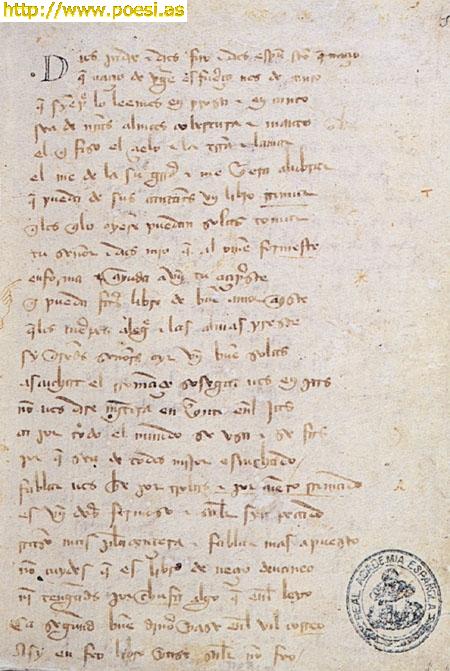 http://www.poesi.as
Dios padre e dios fijo e dios espu sto q nascio
q nascio de vge esfuerço nos de tanto
q syepre lo loemos en prosa e en canto
sea de nras almas cobertura e manto
el q fiso el çielo e la trra e la mar
el me de la su graçia e me alubrar
q pueda de sus cantares vn libro rimar
q los q lo oyere puedan solas tomar
tu señor e dios mio q al ome formeste
enforma e ayuda a my tu açipste
q pueda faser libro de bue amor aqste
q los cuerpos alegre e las almas preste
sy señores oyr vn bue solas
ascuchat el romançe sosegat uos en pas
no uos dire mentira en el jas
ca por todo el mundo se vsa e se fas
por q sea de todos mejor escuchado
fablar uos he por trobas e por cueto rimado
es vn desir fermoso e saber syn pecado
rason mas plasentera e fablar mas apuesto
no cuydes q es libro de neçio deuaneo
ni tengades por chufa algo q en el leyo
ca segund bue dinero yase en vil correo
asy en feo libro yase saber no feo
REAL ACADEMIA ESPAÑOLA